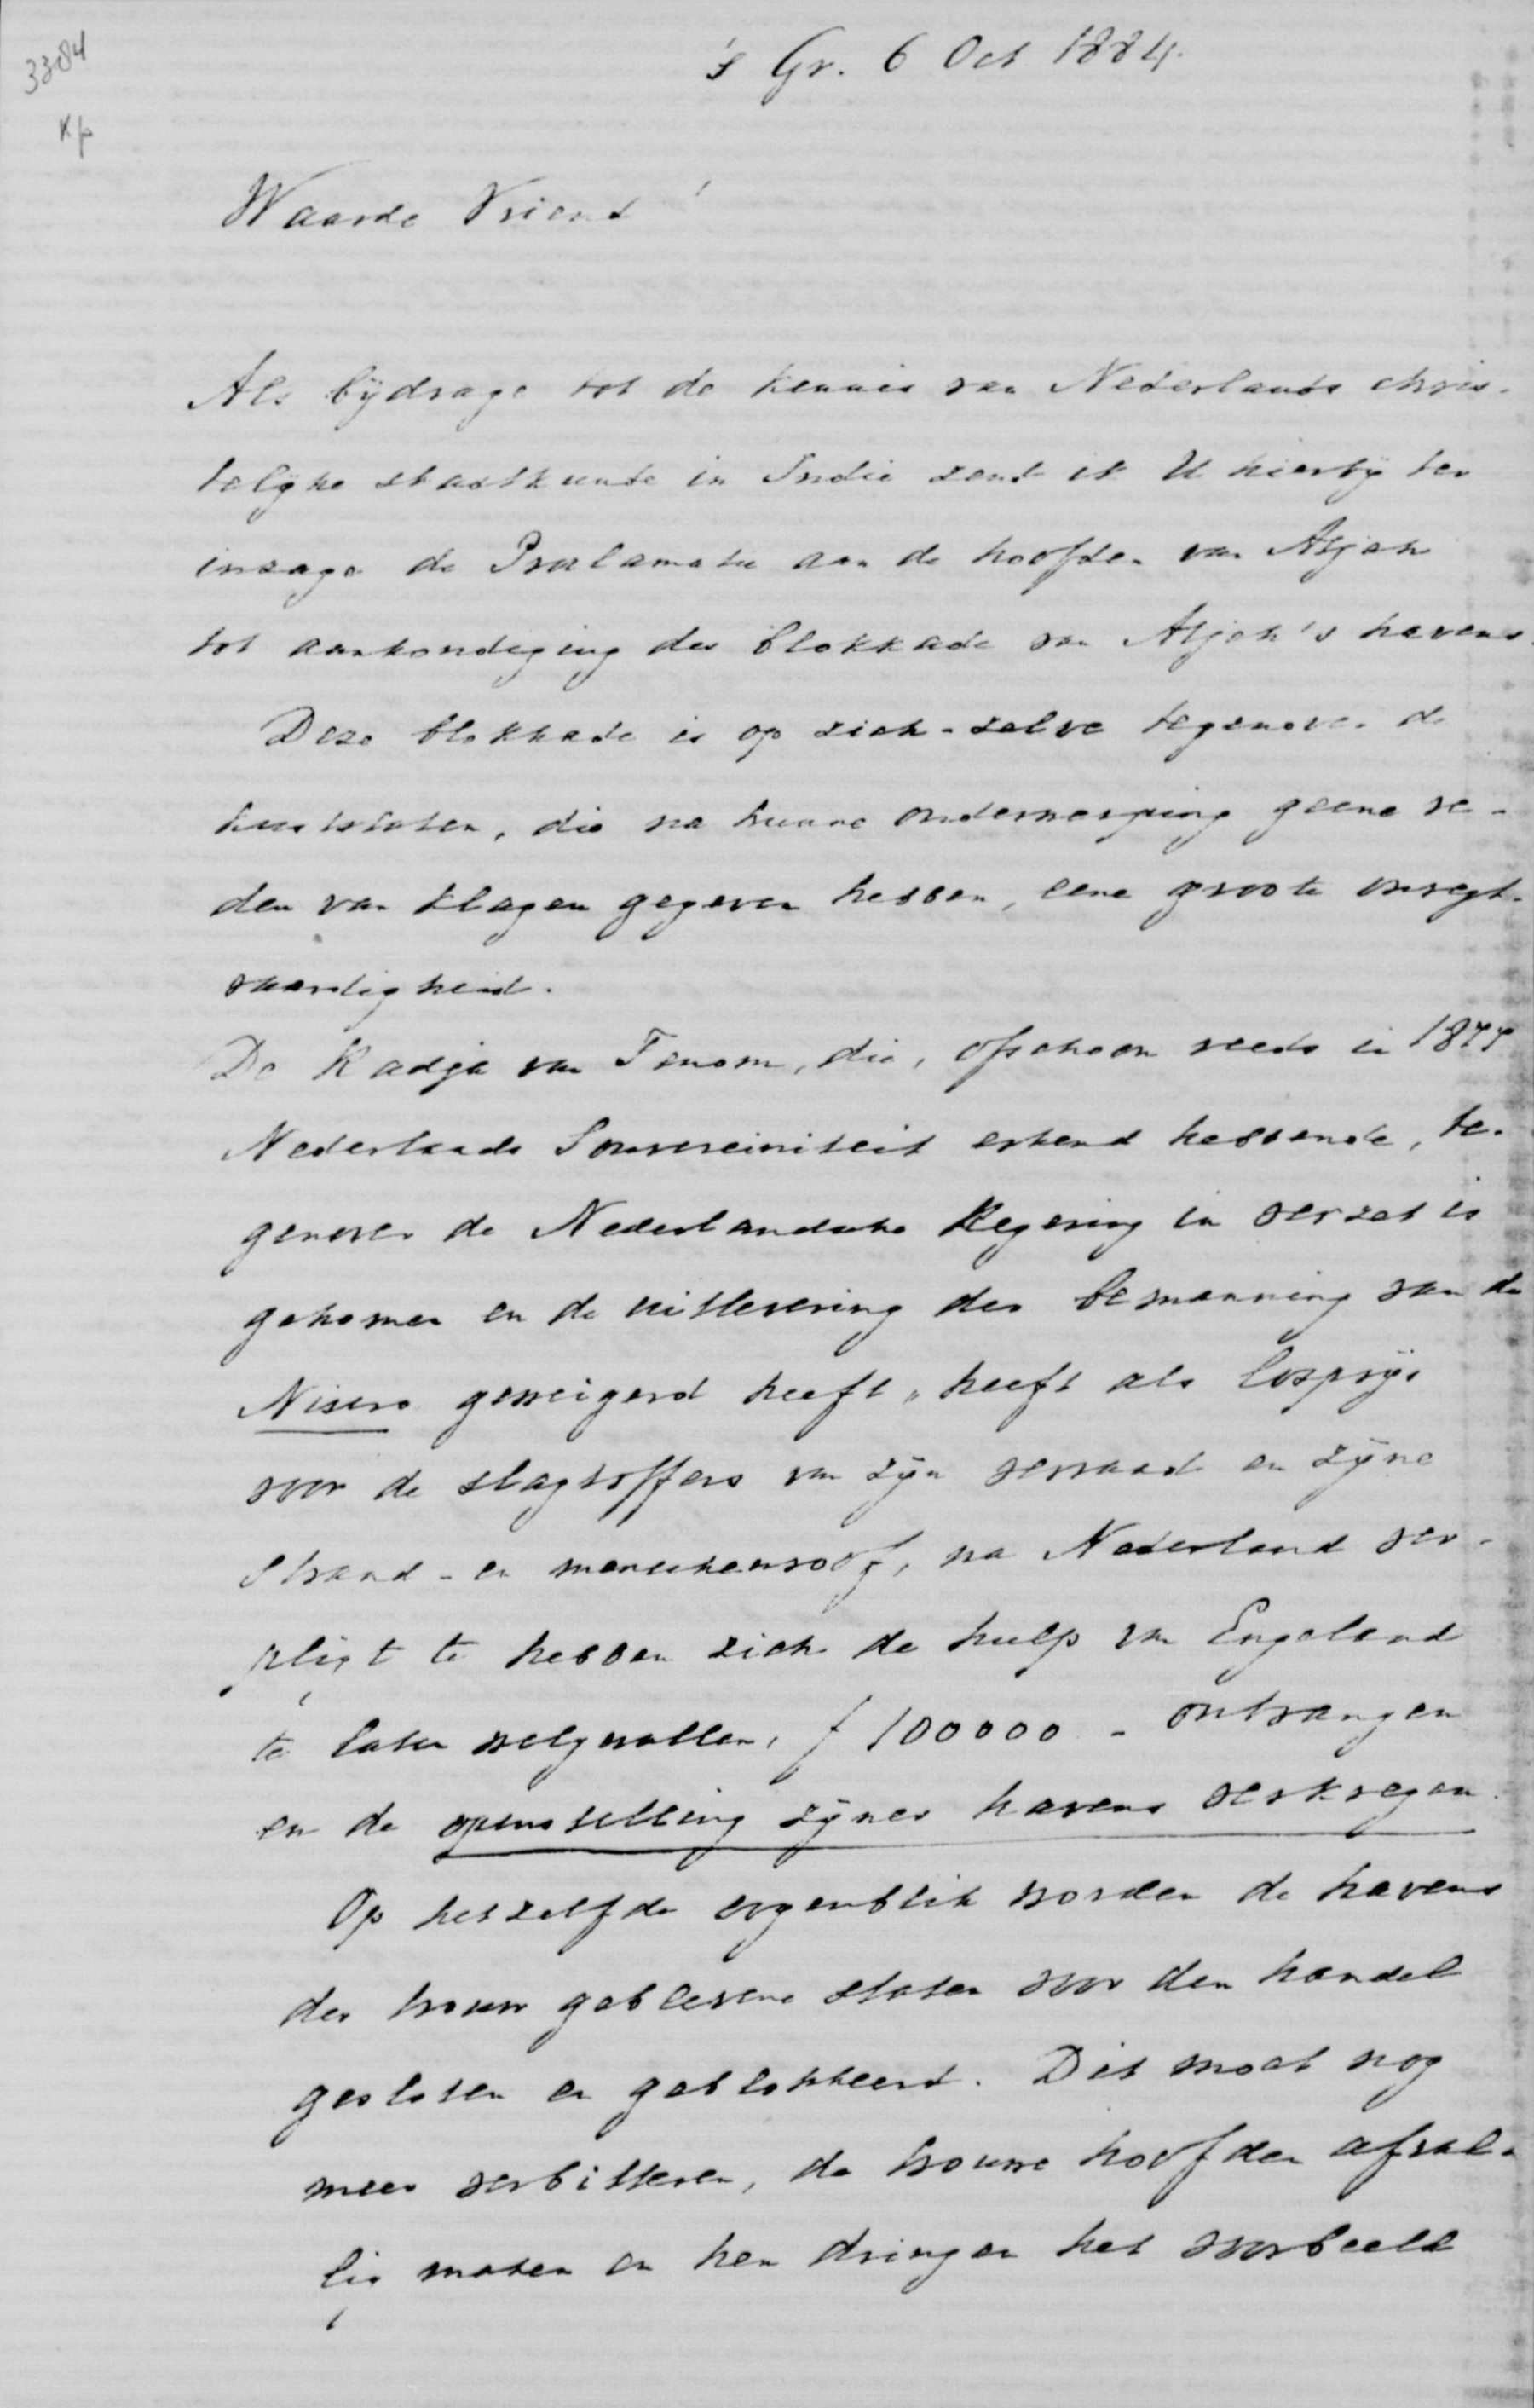 3384
Kp
's Gr. 6 Oct 1884.
Waarde Vriend!
Als bijdrage tot de kennis van Nederlands chris-
telijke staatkunde in Indie zend ik U hierbij ter
inzage de Proclamatie aan de hoofden van Atjeh
tot aankondiging der blokkade van Atjeh's havens.
Deze blokkade is op zich-zelve tegenover de
kuststaten, die na hunne onderwerping geene re-
den van klagen gegeven hebben, eene groote onregt-
vaardigheid.
De Radja van Tenom, die, ofschoon reeds in 1877
Nederlands Souvereiniteit erkend hebbende, te-
genover de Nederlandsche Regering in verzet is
gekomen en de uitlevering der bemanning van de
Nisero geweigerd heeft, heeft als losprijs
voor de slagtoffers van zijn verraad en zijne
strand- en menschenroof, na Nederland ver-
pligt te hebben zich de hulp van Engeland
te laten welgevallen, f 100000 - ontvangen
en de openstelling zijner havens verkregen.
Op hetzelfde oogenblik worden de havens
der trouw gebleven staten voor den handel
gesloten en geblokkeerd. Dit moet nog
meer verbitteren, de trouwe hoofden afval-
lig maken en hen dringen het voorbeeld